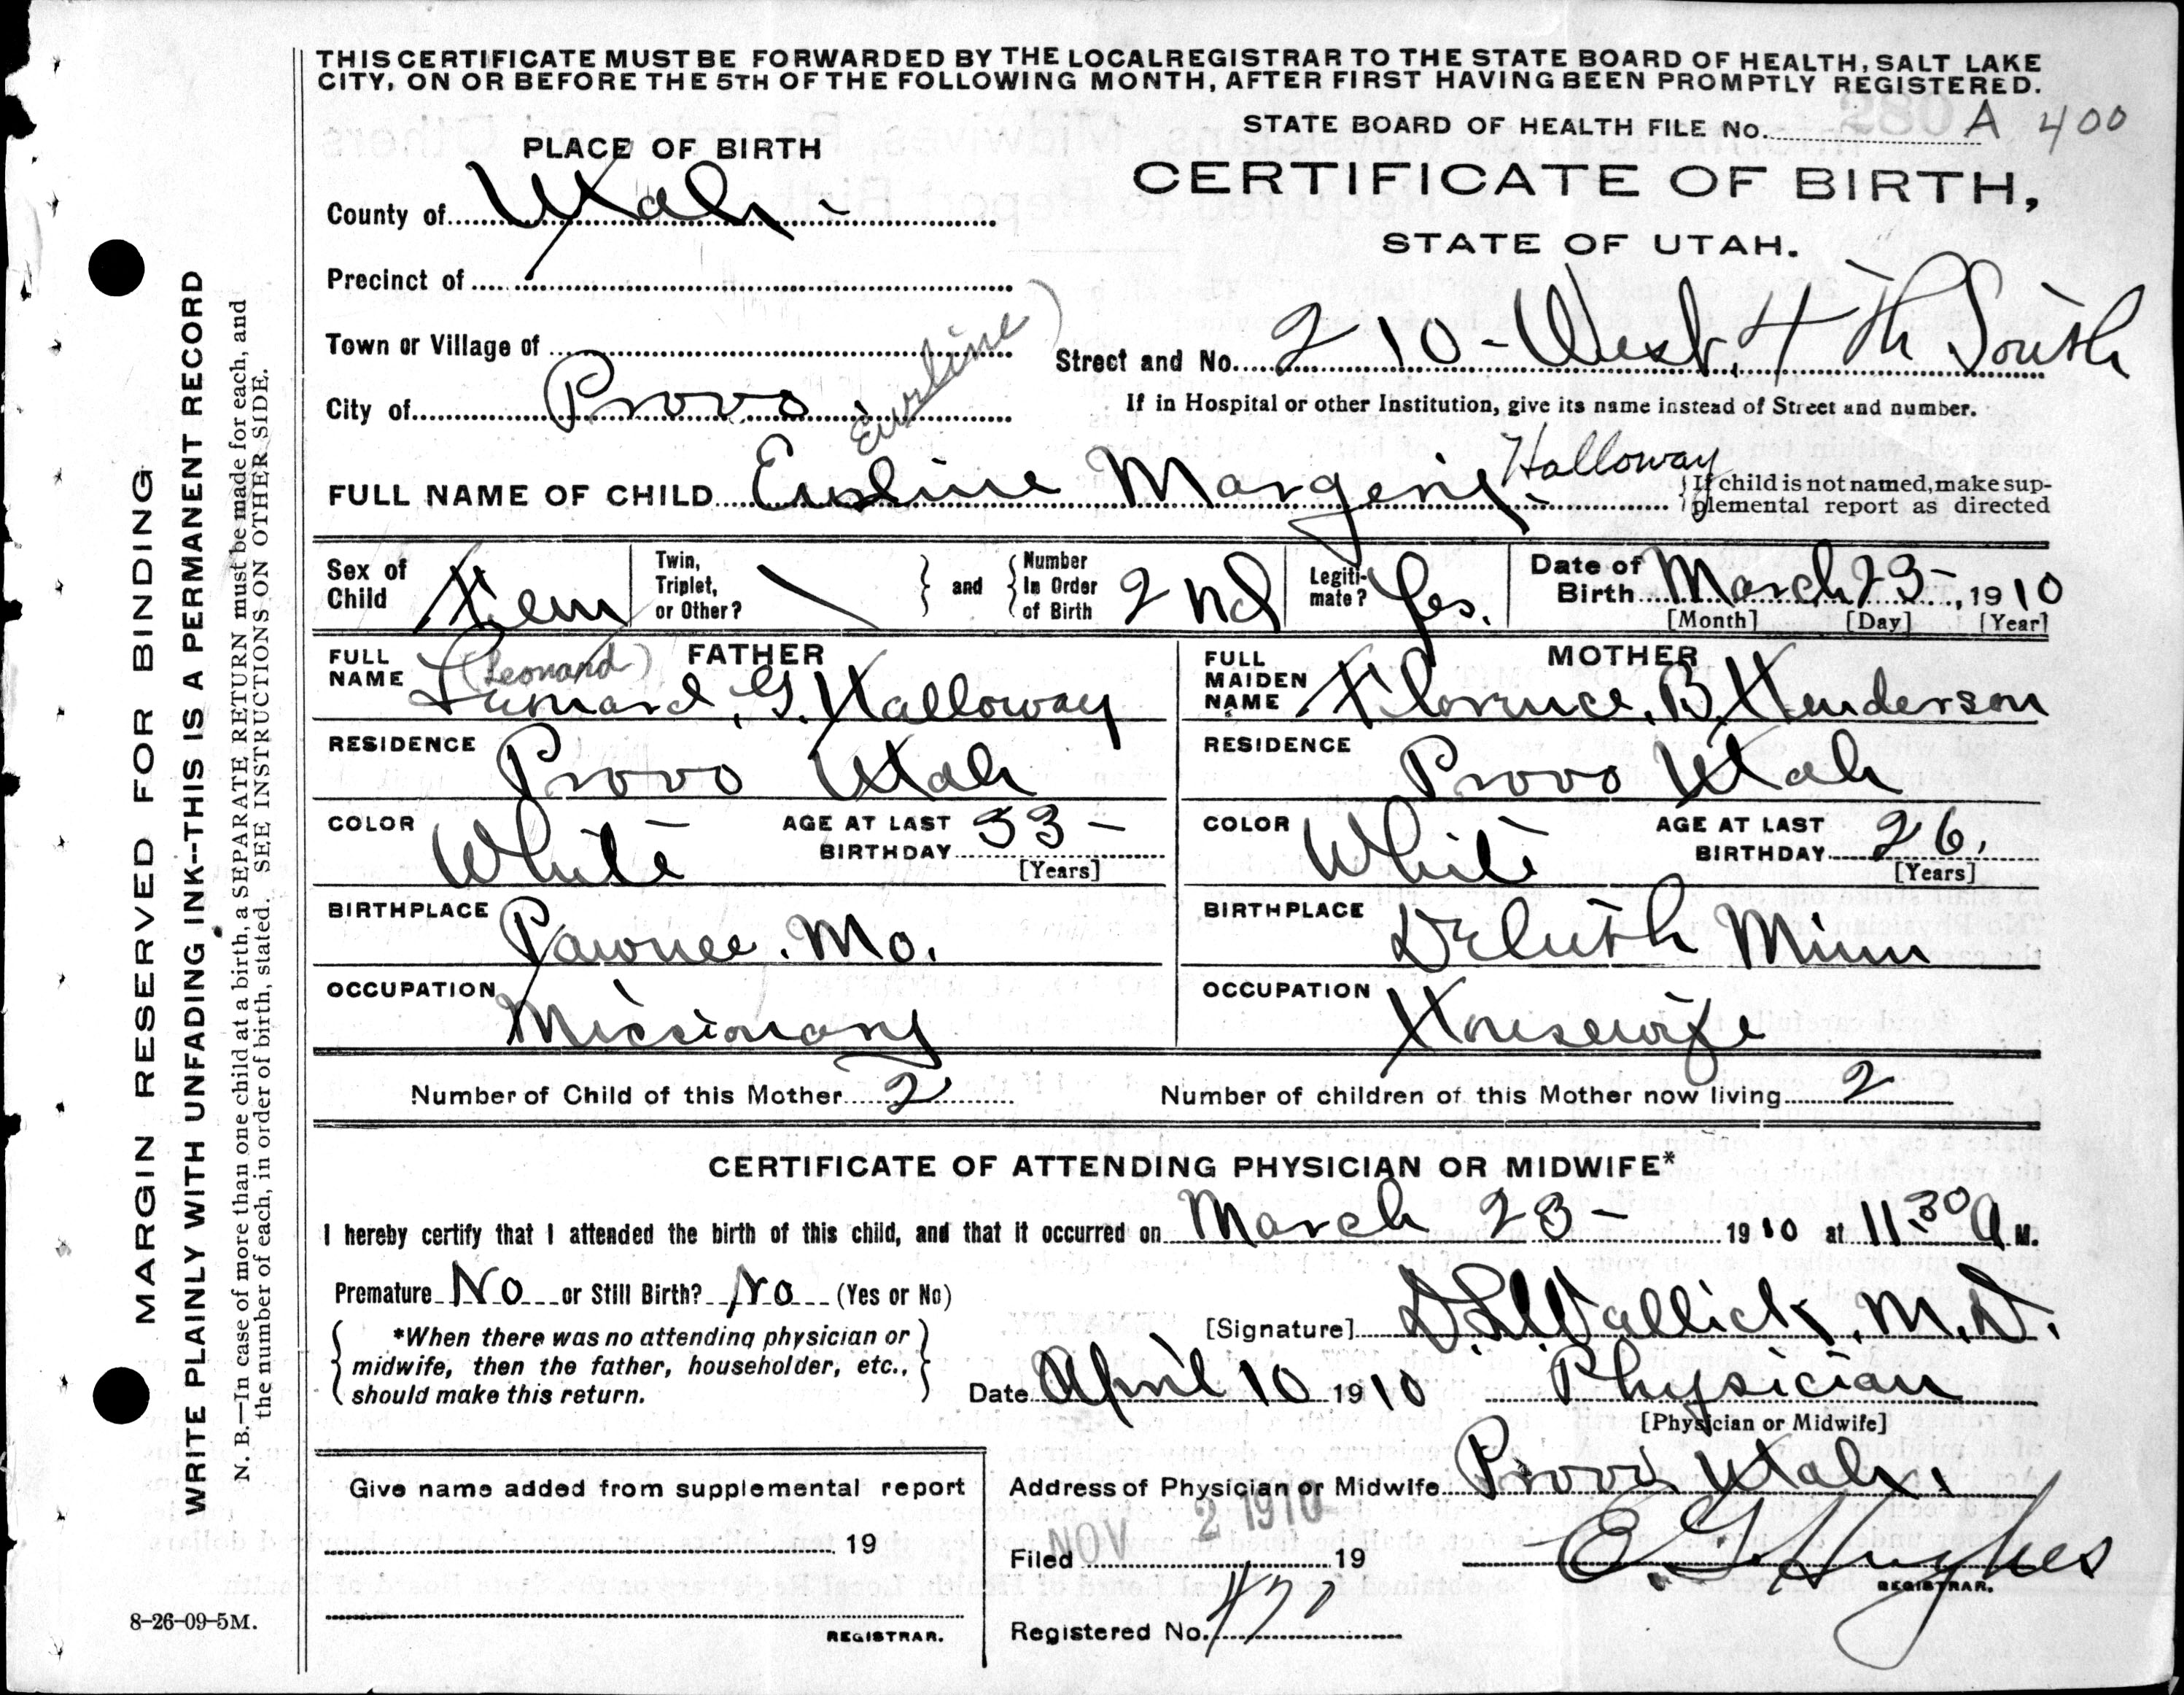 THIS CERTIFICATE MUST BE FORWARDED BY THE LOCAL REGISTRAR TO THE STATE BOARD OF HEALTH, SALT LAKE
CITY, ON OR BEFORE THE 5TH OF THE FOLLOWING MONTH, AFTER FIRST HAVING BEEN PROMPTLY REGISTERED.
STATE BOARD OF HEALTH FILE No. 280 A 400
PLACE OF BIRTH
CERTIFICATE OF BIRTH,
County of Utah -
STATE OF UTAH.
Precinct of
Town or Village of
Street and No. 210 - West. 4th South
City of Provo.
If in Hospital or other Institution, give its name instead of Street and number.
FULL NAME OF CHILD Margene. Halloway
{If child is not named, make sup-
plemental report as directed
Sex of Child Fem
Twin, Triplet, or Other? \
and
Number In Order of Birth 2nd
Legiti-mate? Yes.
Date of Birth March 23-, 1910
[Month] [Day] [Year]
FATHER
FULL NAME (Leonard)
G. Halloway
MOTHER
FULL MAIDEN NAME Florence. B. Henderson
RESIDENCE Provo Utah
RESIDENCE Provo Utah
COLOR White
AGE AT LAST BIRTHDAY 33 -
[Years]
COLOR White
AGE AT LAST BIRTHDAY 26.
[Years]
BIRTHPLACE Pawnee. Mo.
BIRTHPLACE Deluth Minn
OCCUPATION Missionary
OCCUPATION Housewife
Number of Child of this Mother 2
Number of children of this Mother now living 2
CERTIFICATE OF ATTENDING PHYSICIAN OR MIDWIFE*
I hereby certify that I attended the birth of this child, and that it occurred on March 23 - 1910 at 11.30 A M.
Premature No or Still Birth? No (Yes or No)
[Signature] Wallick. M.D.
*When there was no attending physician or
midwife, then the father, householder, etc.,
should make this return.
Date April 10 1910
Physician
[Physician or Midwife]
Give name added from supplemental report
19
REGISTRAR.
Address of Physician or Midwife Provo Utah.
Filed NOV 2 1910 19
E G Hughes
REGISTRAR.
Registered No.
8-26-09-5M.
MARGIN RESERVED FOR BINDING
WRITE PLAINLY WITH UNFADING INK--THIS IS A PERMANENT RECORD
N. B.—In case of more than one child at a birth, a SEPARATE RETURN must be made for each, and
the number of each, in order of birth, stated. SEE INSTRUCTIONS ON OTHER SIDE.